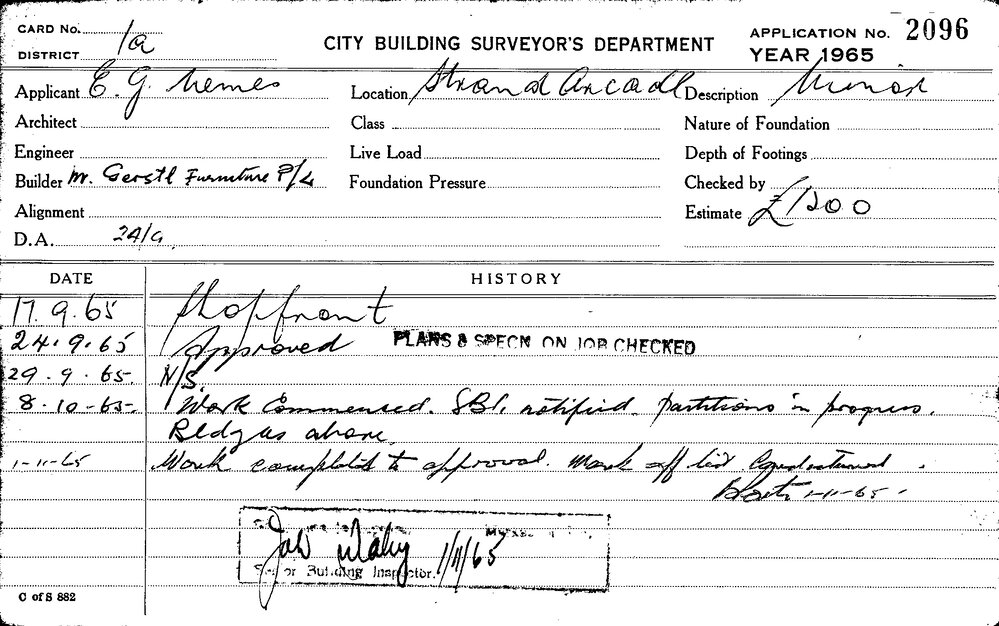 CARD No. 1a
DISTRICT
CITY BUILDING SURVEYOR'S DEPARTMENT
APPLICATION No. 2096
YEAR 1965
Applicant E. G. Nemes Location Strand Arcade Description Minor
Architect Class Nature of Foundation
Engineer Live Load Depth of Footings
Builder M. Gerstl Furniture P/L Foundation Pressure Checked by
Alignment Estimate £1200
D.A. 24/9
DATE HISTORY
17.9.65 Shopfront
24.9.65 Approved PLANS & SPECN ON JOB CHECKED
29.9.65 N/S.
8.10-65- Work Commenced. SBI. notified. Partitions in progress.
Bldg as above.
1-11-65 Work completed to approval. Mark off list
1-11-65.
1/11/65
Senior Building Inspector.
C of S 882